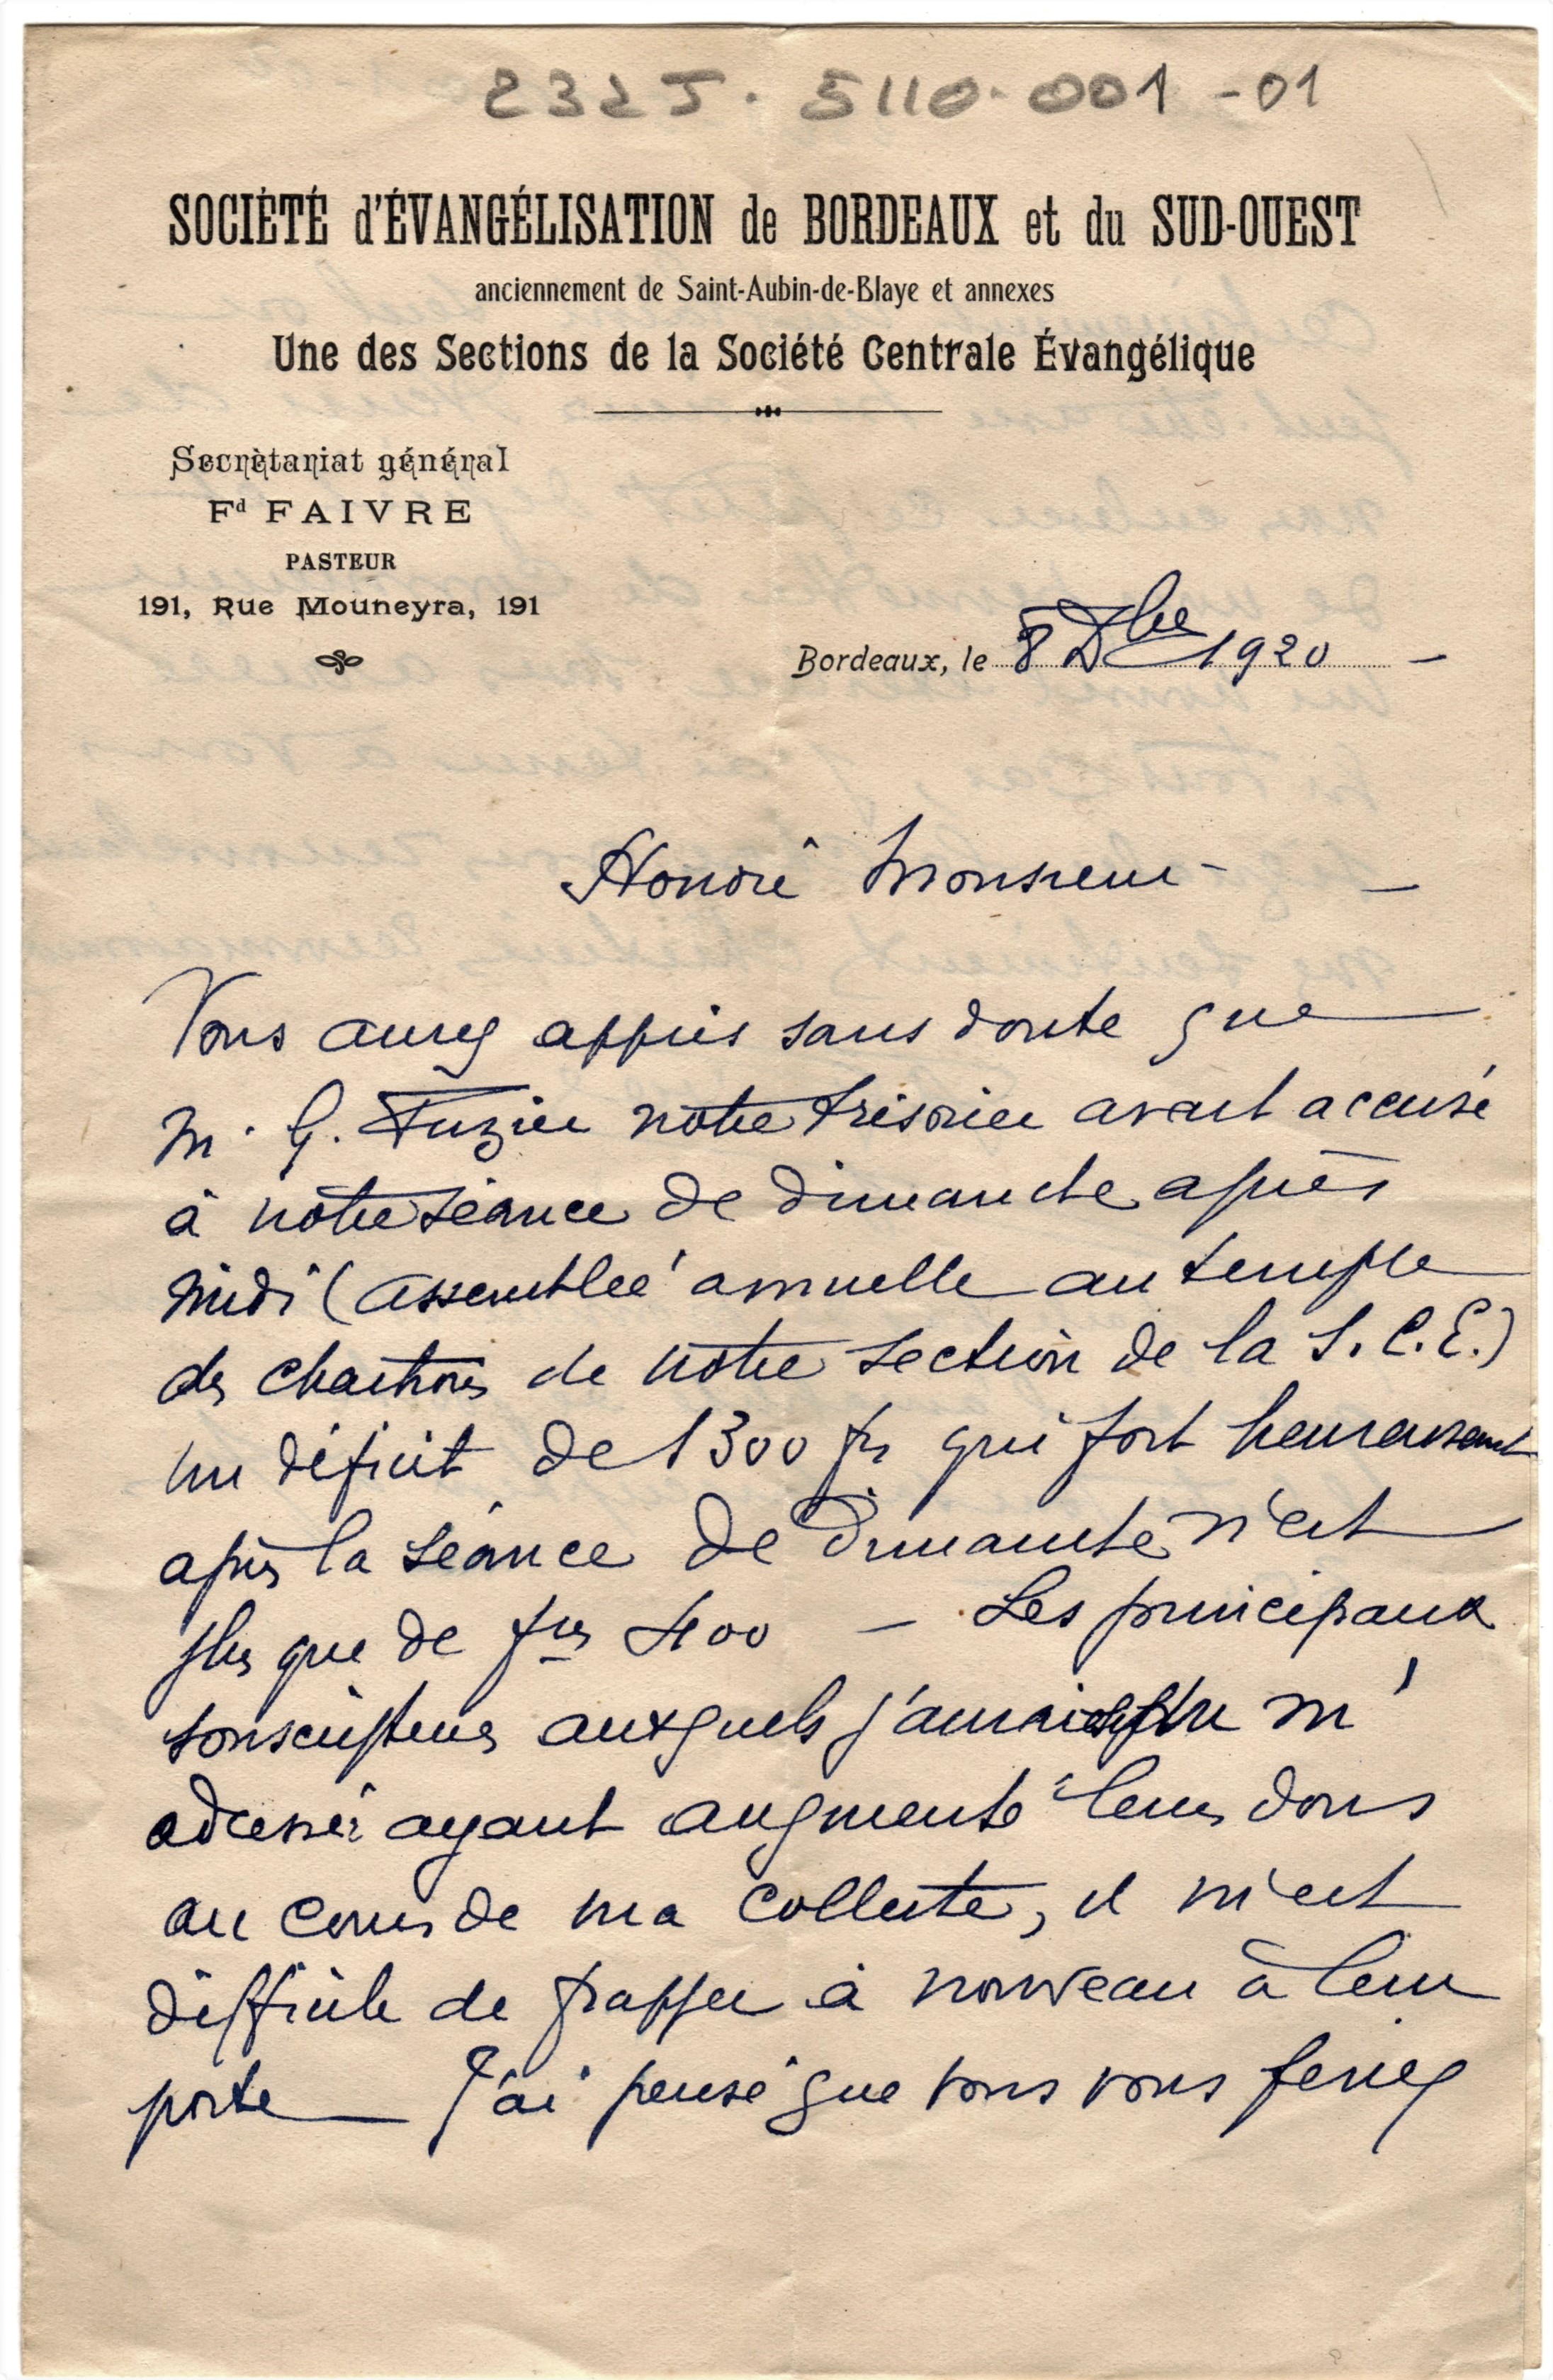 232J. 5110.001-01
SOCIÉTÉ d'ÉVANGÉLISATION de BORDEAUX et du SUD-OUEST
anciennement de Saint-Aubin-de-Blaye et annexes
Une des Sections de la Société Centrale Évangélique
Secrètariat général
Fd FAIVRE
PASTEUR
191, Rue Mouneyra, 191
Bordeaux, le 8 Dbre 1920 -
Honoré Monsieur - -
Vous aurez appris sans doute que
M. G. Fuzier notre trésorier avait accusé
à notre séance de dimanche après
midi (assemblée annuelle au temple
des Chartrons de notre section de la S.C.E.)
un déficit de 1300 frs qui fort heureusement
après la séance de Dimanche n'est
plus que de frs 400 - Les principaux
souscripteurs auxquels j'aurais pu m'
adresser ayant augmenté leurs dons
au cours de ma collecte, il m'est
difficile de frapper à nouveau à leur
porte - J'ai pensé que vous vous feriez